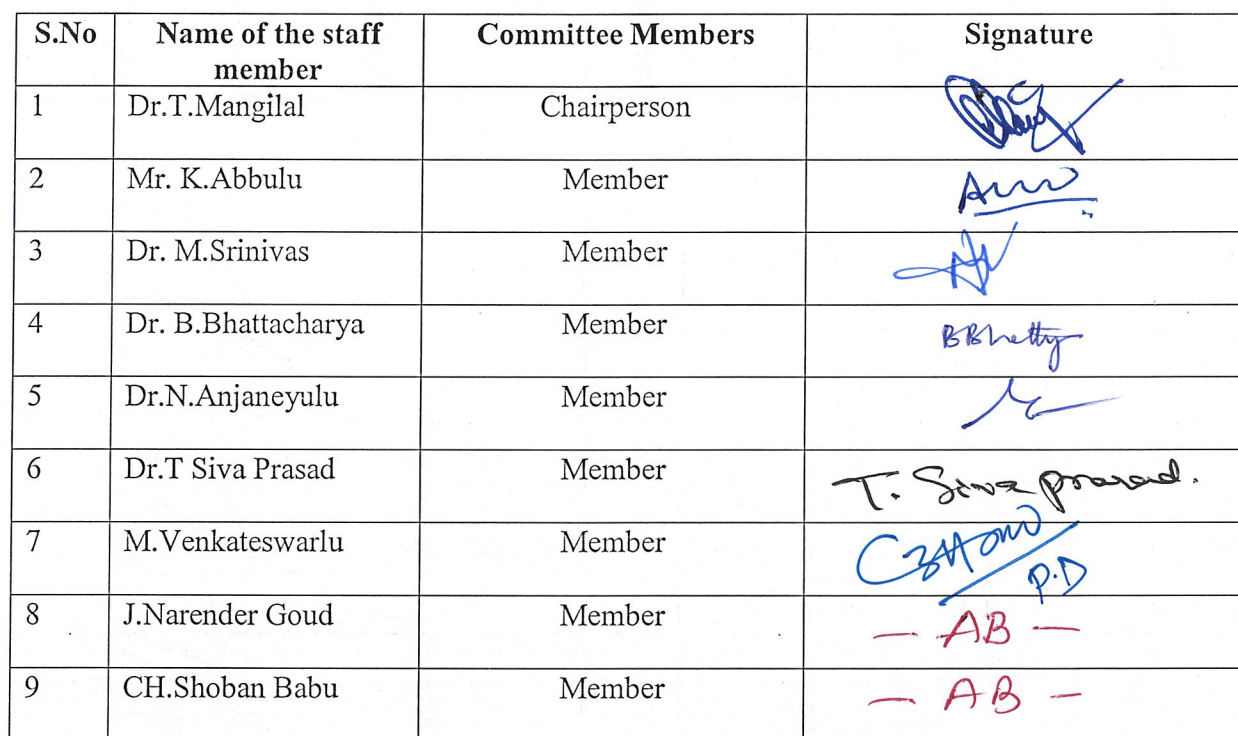 S.No Name of the staff member Committee Members Signature
1 Dr.T.Mangilal Chairperson
2 Mr. K.Abbulu Member
3 Dr. M.Srinivas Member
4 Dr. B.Bhattacharya Member
5 Dr.N.Anjaneyulu Member
6 Dr.T Siva Prasad Member T. Siva prasad.
7 M.Venkateswarlu Member P.D
8 J.Narender Goud Member — AB —
9 CH.Shoban Babu Member — AB —